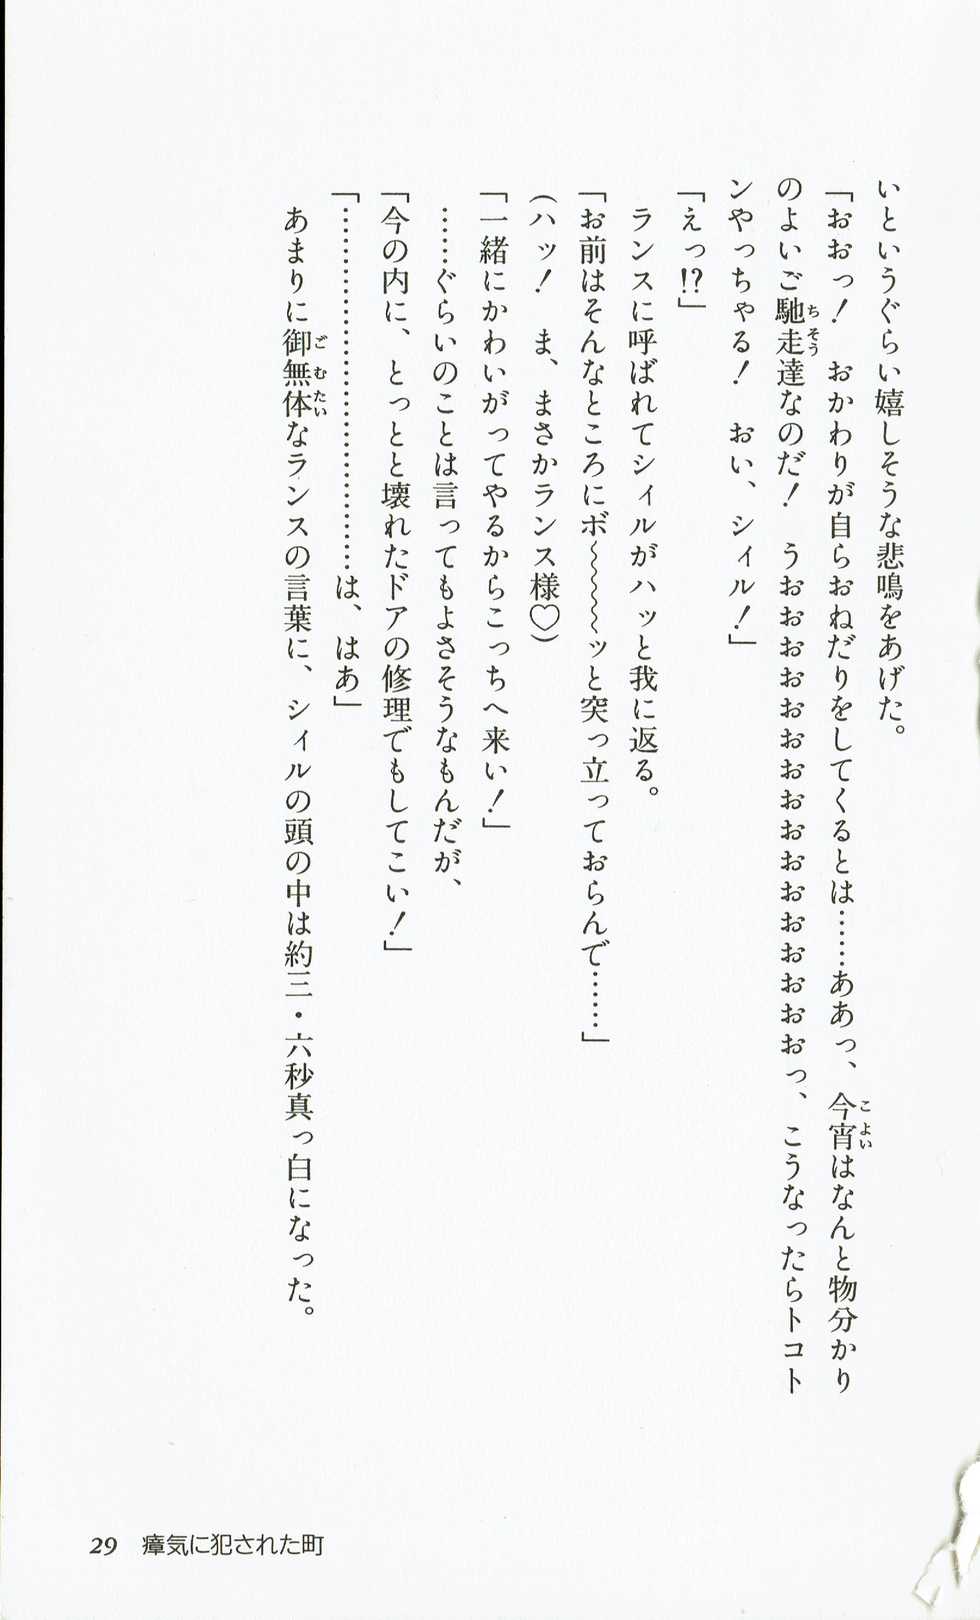 いというぐらい嬉しそうな悲鳴をあげた。
「おおっ！　おかわりが自らおねだりをしてくるとは……ああっ、今宵はなんと物分かり
のよいご馳走達なのだ！　うおおおおおおおおおおおおおおおおっ、こうなったらトコト
ンやっちゃる！　おい、シィル！」
「えっ!?」
　ランスに呼ばれてシィルがハッと我に返る。
「お前はそんなところにボ〜〜〜〜ッと突っ立っておらんで……」
（ハッ！　ま、まさかランス様♡）
「一緒にかわいがってやるからこっちへ来い！」
　……ぐらいのことは言ってもよさそうなもんだが、
「今の内に、とっとと壊れたドアの修理でもしてこい！」
「………………………………は、はあ」
　あまりに御無体なランスの言葉に、シィルの頭の中は約三・六秒真っ白になった。
29　瘴気に犯された町